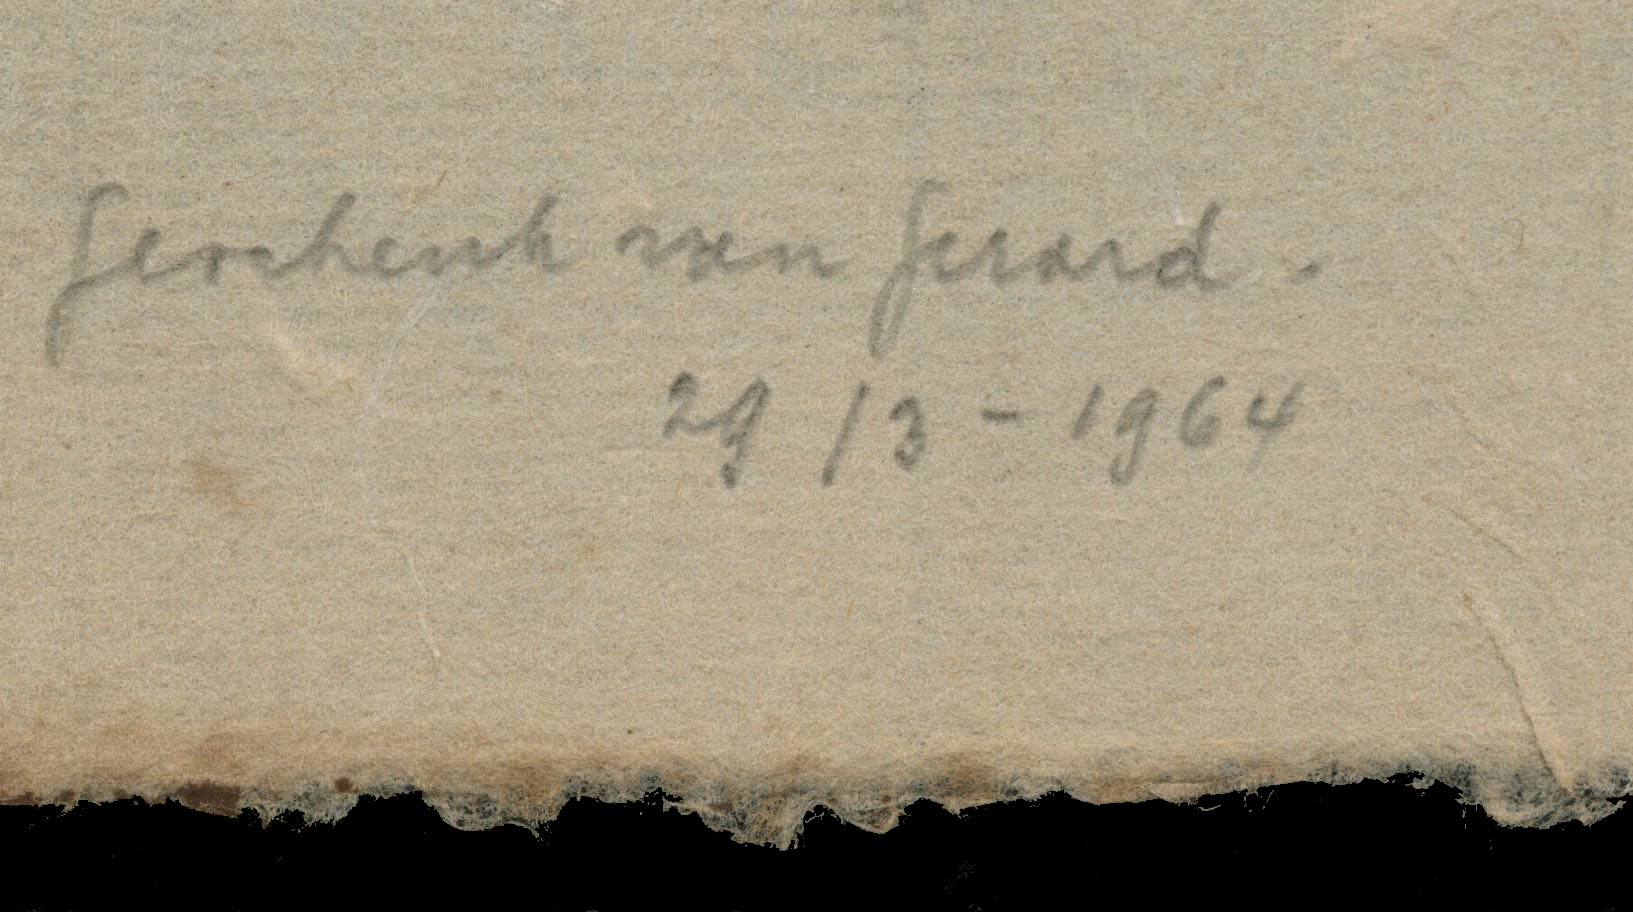 Geschenk van Gerard.
29/3-1964